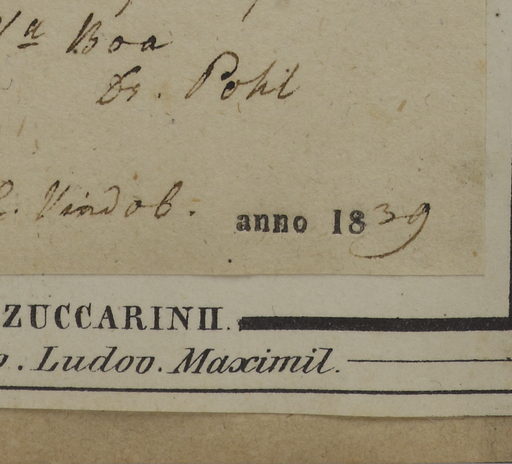 Va Boa
Dr. Pohl
. Vindob.
anno 1839
ZUCCARINII.
. Ludov. Maximil.